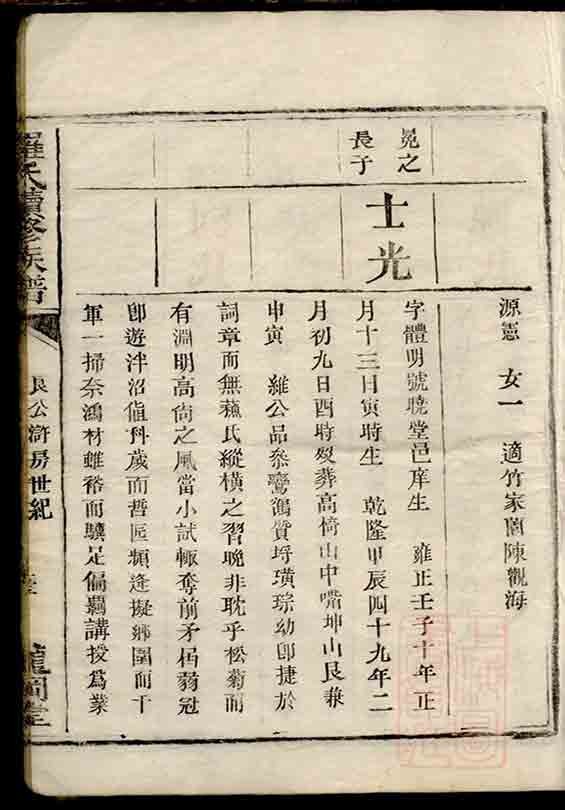 源憲　女一　適竹家園陳觀海
冕之
長子
士光
字體明號曉堂邑庠生　雍正壬子十年正
月十三日寅時生　乾隆甲辰四十九年二
月初九日酉時歿葬高倚山中嘴坤山艮兼
申寅　維公品叅鸞鴻質埒璜琮幼卽捷於
詞章而無蘓氏縱橫之習晚非耽乎松菊而
有淵明高尙之風當小試輙奪前矛届弱冠
卽遊泮沼値科歲而哲匠頻逢擬鄉闈而千
軍一掃奈鴻材雖裕而驥足偏覊講授爲業
羅氏續修族譜
良公滸房世紀
龍岡堂